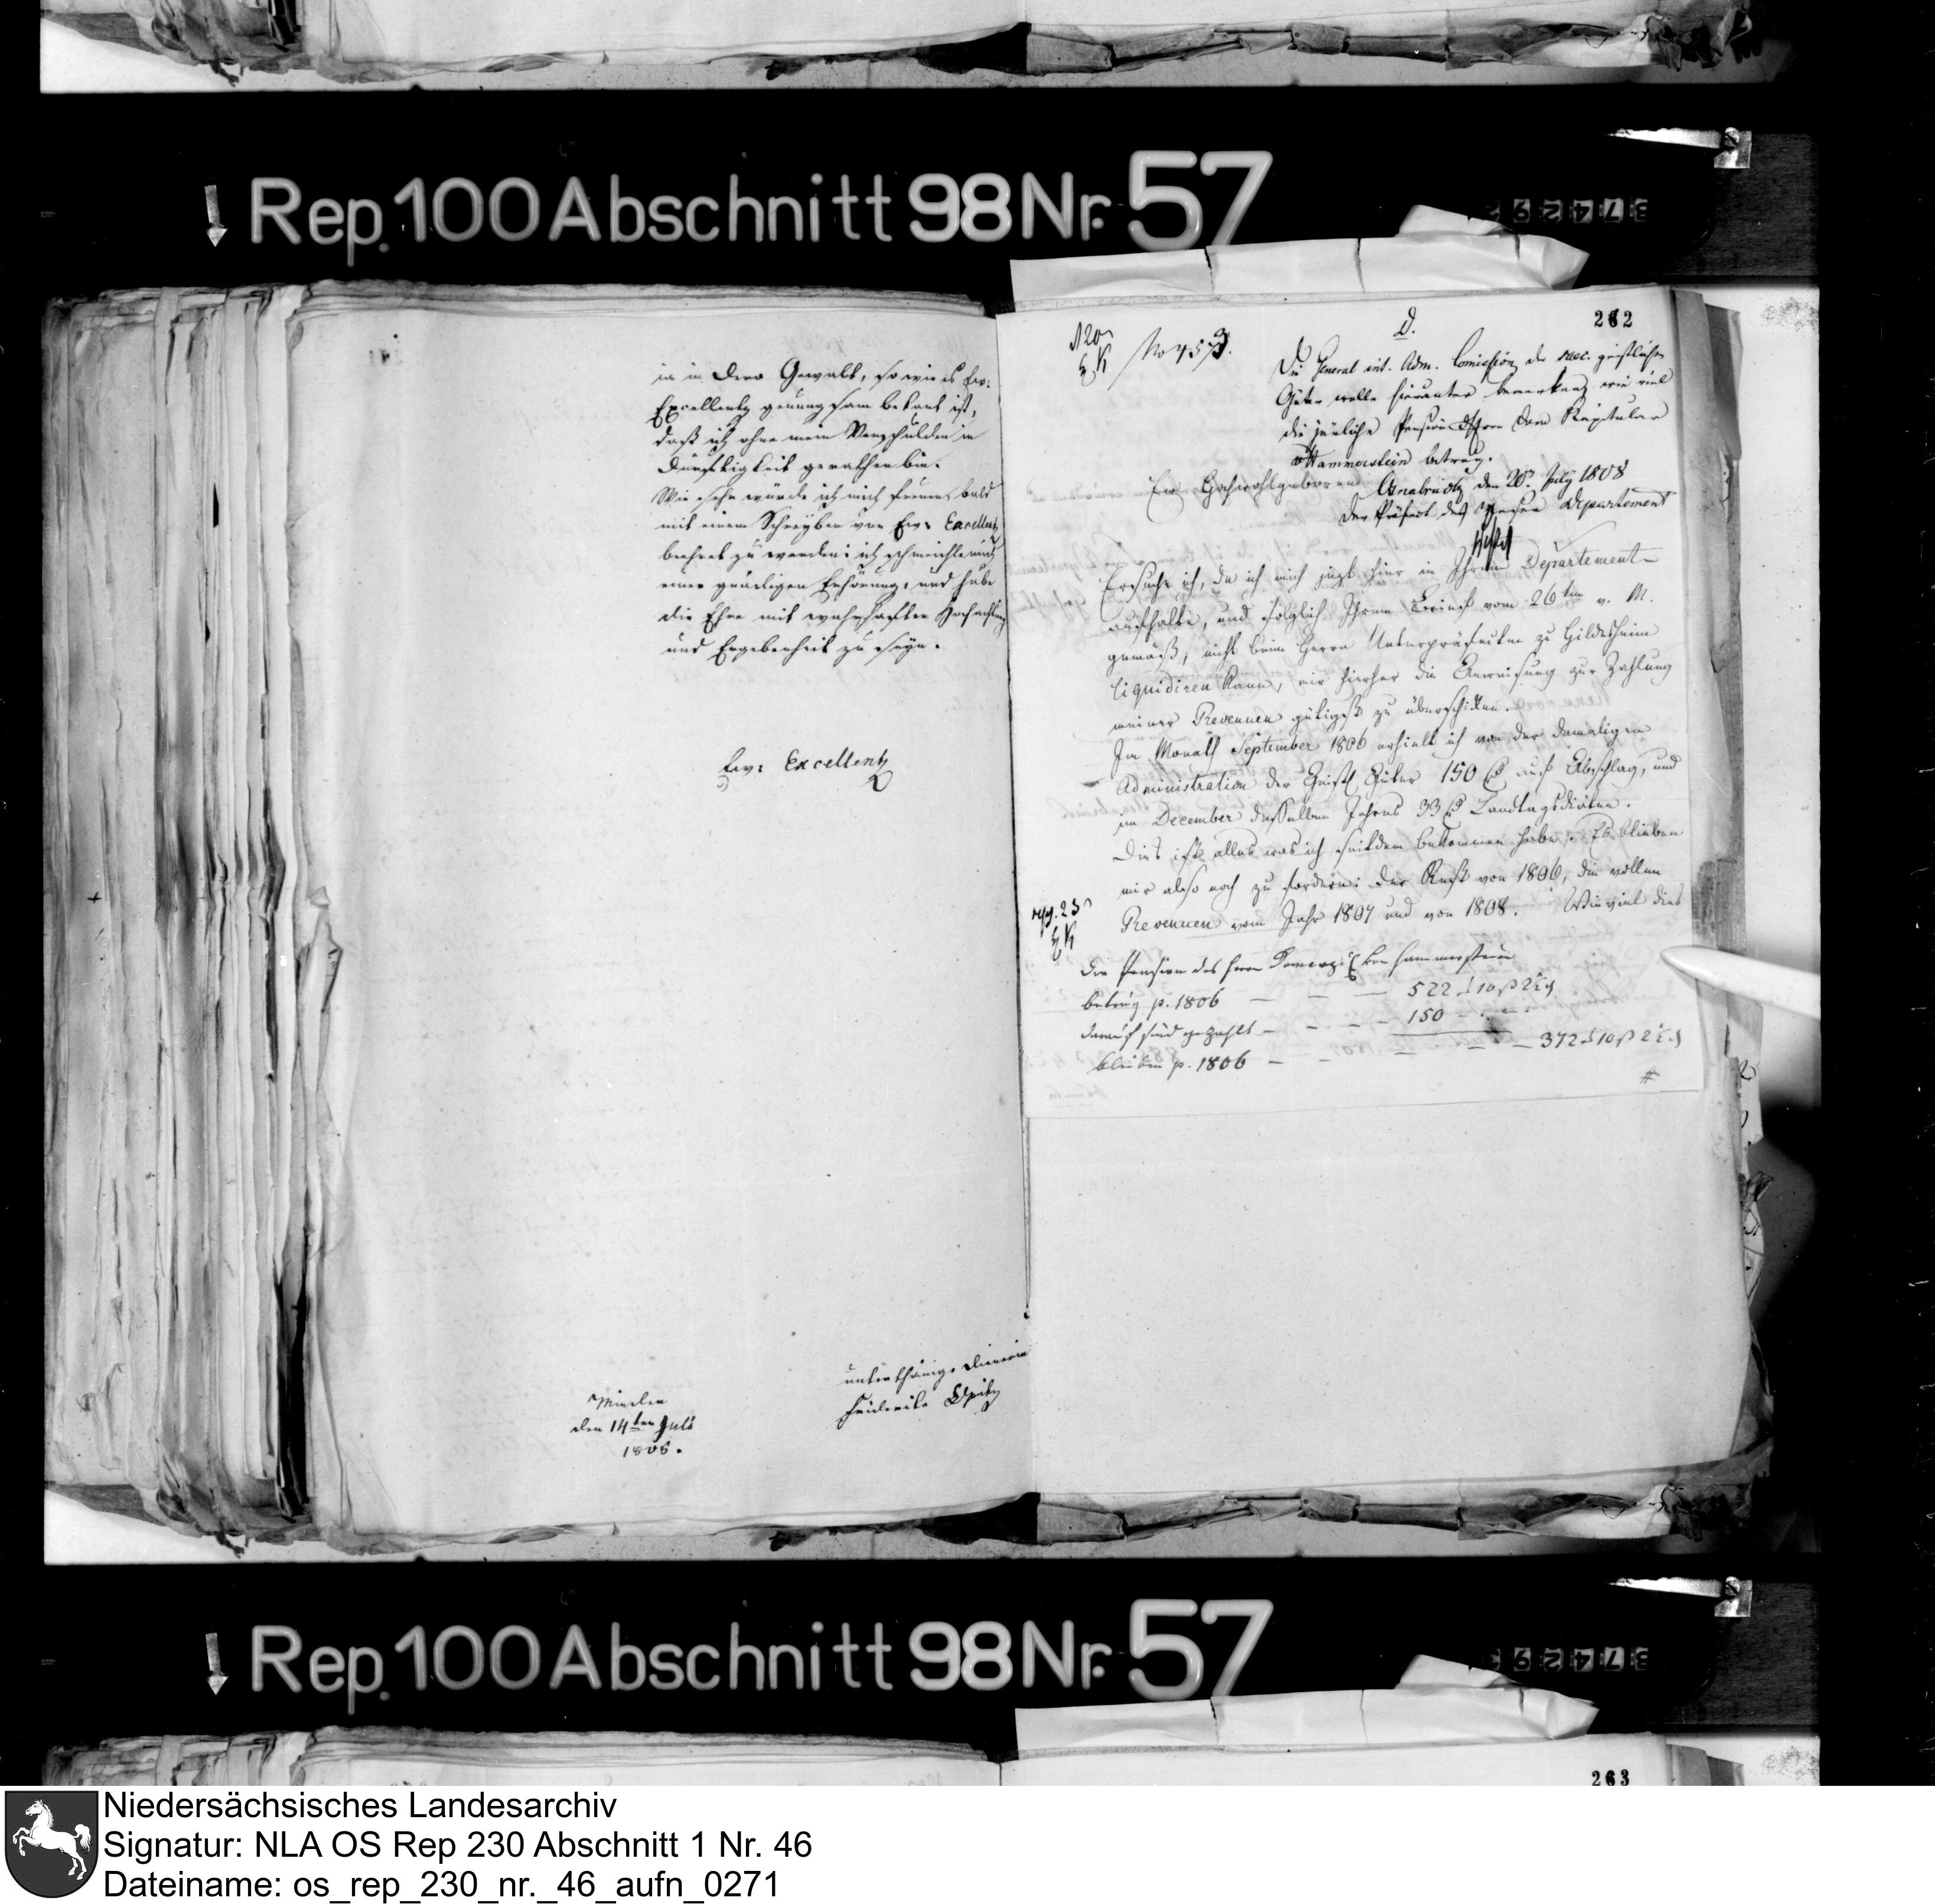 Rep. 100 Abschnitt 98 Nr. 57
in in Dero Gewalt, so wie es Ew:
Excellentz genungsam bekant ist,
daß ich ohne mein Verschulden in
Dürftigkeit gerathen bin.
Wie sehr würde ich mich freuen, bald
mit einem Schreyben von Ew: Excellentz
beehret zu werden; ich schmeichle mich
einer gnädigen Erhörung, und habe
die Ehre mit wahrhafter Hochachtung
und Ergebenheit zu seyn.
Ew: Excellentz
unterthänige Dienerin
Friderike
Minden
den 14ten Juli
1808.
262
D.
No 457
Die General int. Adm. Comission der saec. geistlichen
Güter wolle hierunter bemerken, wie viel
die järliche Pension des Herrn Dom Kapitular
v Hammerstein betrug.
Osnabrück den 20n July 1808
Der Präfect des Weser Departement
Ew Hochwohlgeboren
Ersuche ich, da ich mich jezt hier in Ihrem Departement
aufhalte, und folglich Ihrem Briefe vom 26ten v. M.
gemäß, nicht beim Herrn Unterpräfecten zu Hildesheim
liquidiren kann, mir hierher die Anweisung zur Zahlung
meiner Revenuen gütigst zu überschicken.
Im Monath September 1806 erhielt ich von der damaligen
Administration der Geistl Güter 150 auf Abschlag, und
im December desselben Jahres 33 Landtagsdiäten.
Dies ist alles was ich seitdem bekommen habe. Es blieben
mir also noch zu fordern: der Rest von 1806, die vollen
Revenuen vom Jahr 1807 und von 1808. Wieviel dies
Die Pension des Herrn von Hammerstein
betrug p. 1806 — — — 522 10 2
darauf sind gezahlt — — — 150
bleiben p. 1806 — — — — — 372 10 2
#
Rep. 100 Abschnitt 98 Nr. 57
263
Niedersächsisches Landesarchiv
Signatur: NLA OS Rep 230 Abschnitt 1 Nr. 46
Dateiname: os_rep_230_nr._46_aufn_0271